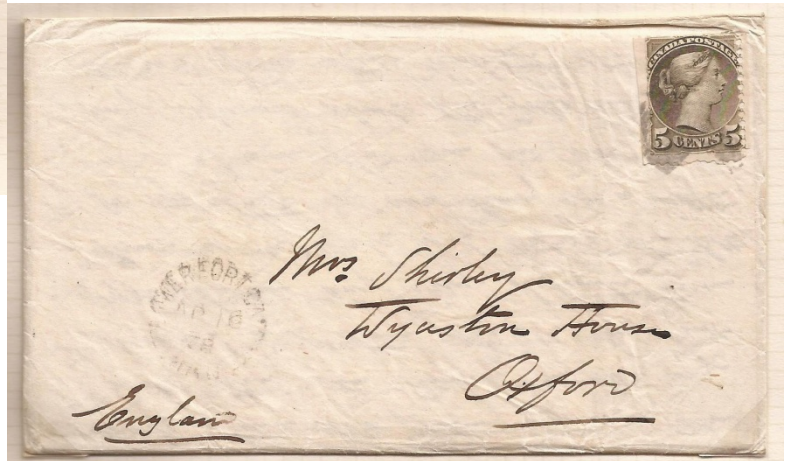 CANADA POSTAGE
5 CENTS 5
Mrs Shirley
Wyaston House
Oxford
England